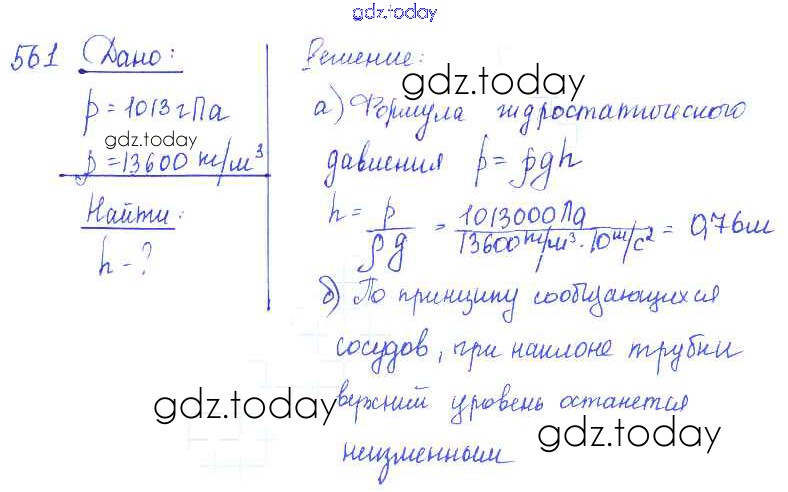 gdz.today
561 Дано:
p = 1013 гПа
gdz.today
ρ = 13600 кг/м³
Найти:
h - ?
Решение:
gdz.today
а) Формула гидростатического
давления p = ρgh
h = p/ρg = 1013000Па/13600 кг/м³ · 10 м/с² = 0,76м
б) По принципу сообщающихся
сосудов, при наклоне трубки
верхний уровень останется
неизменным
gdz.today
gdz.today